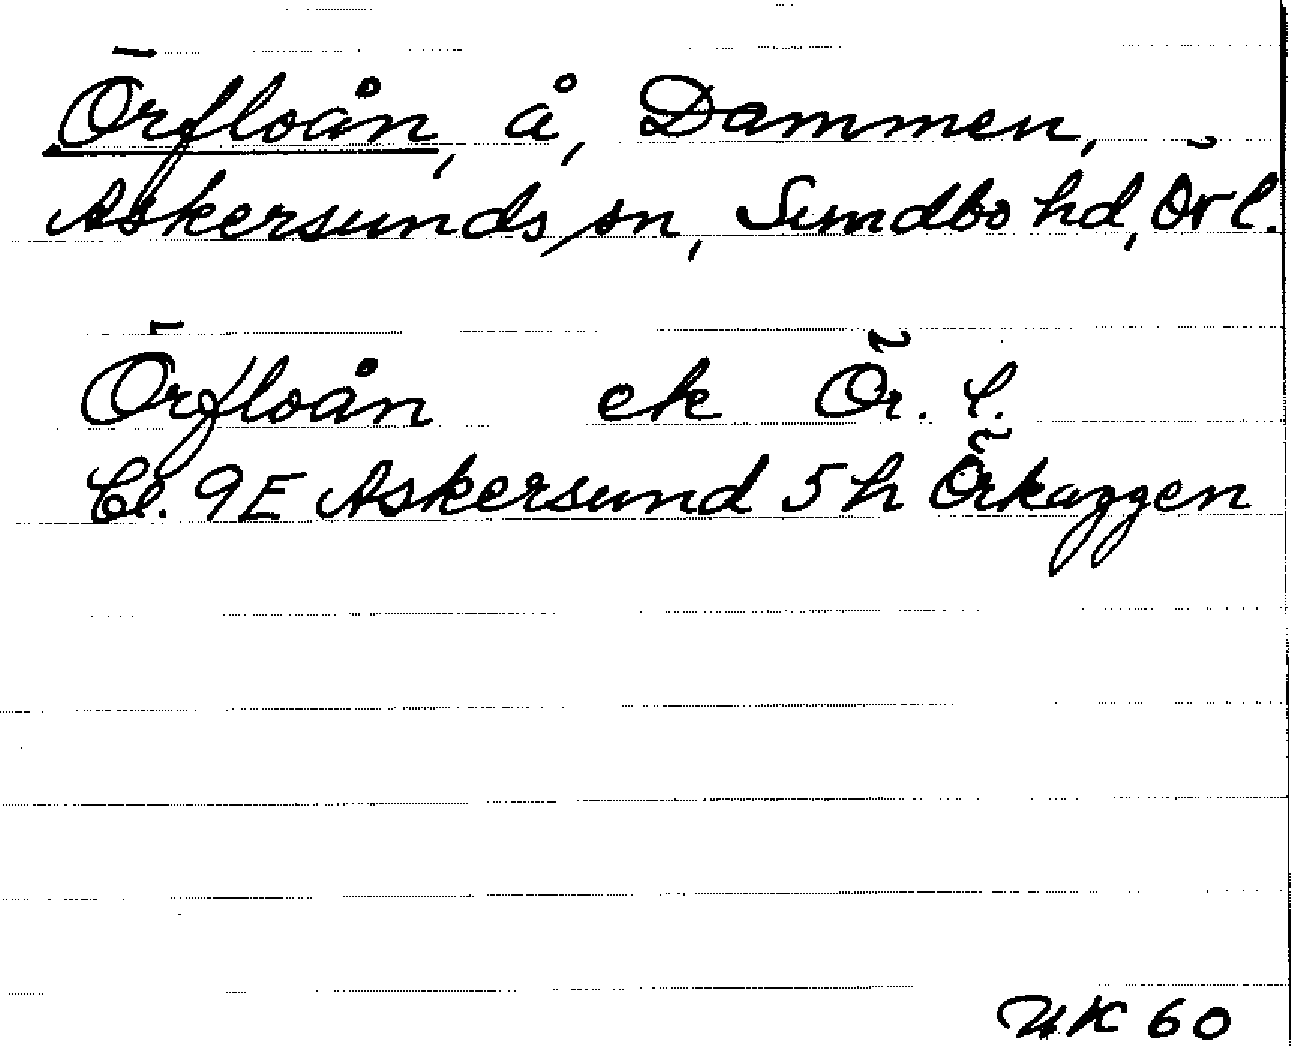 Örfloån, å, Dammen,
Askersunds sn, Sundbo hd, Ör l.
Örfloån ek Ör. l.
Bl. 9E Askersund 5h Örkaggen
UK 60